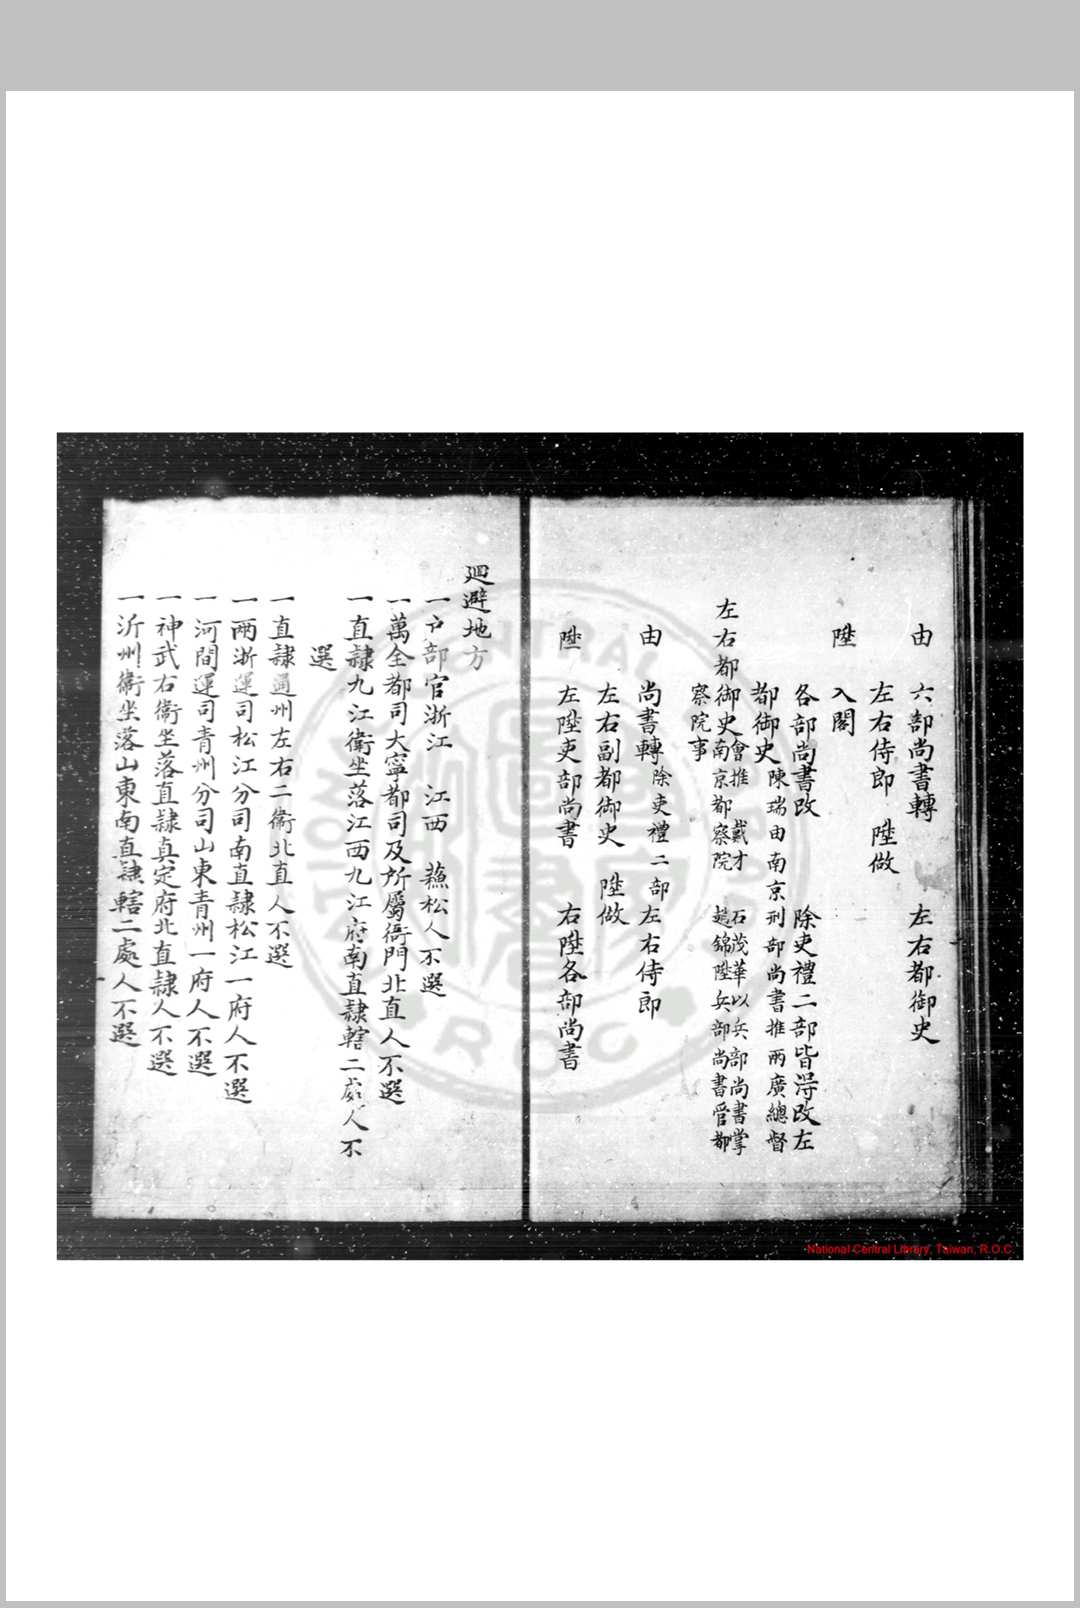 由　六部尚書轉　左右都御史
左右侍郎　陞做
陞　入閣
各部尚書改　除吏禮二部皆淂改左
都御史陳瑞由南京刑部尚書推兩廣總督
左右都御史會推　戴才　石茂華以兵部尚書掌
南京都察院　趙錦陞兵部尚書管都
察院事
由　尚書轉除吏禮二部左右侍郎
左右副都御史　陞做
陞　左陞吏部尚書　右陞各部尚書
迴避地方
一戶部官浙江　江西　蘓松人不選
一萬全都司大寧都司及所屬衙門北直人不選
一直隷九江衛坐落江西九江府南直隷轄二處人不
選
一直隷通州左右二衛北直人不選
一兩浙運司松江分司南直隷松江一府人不選
一河間運司青州分司山東青州一府人不選
一神武右衛坐落直隷真定府北直隷人不選
一沂州衛坐落山東南直隷轄二處人不選
National Central Library, Taiwan, R.O.C
NATIONAL CENTRAL LIBRARY
R.O.C